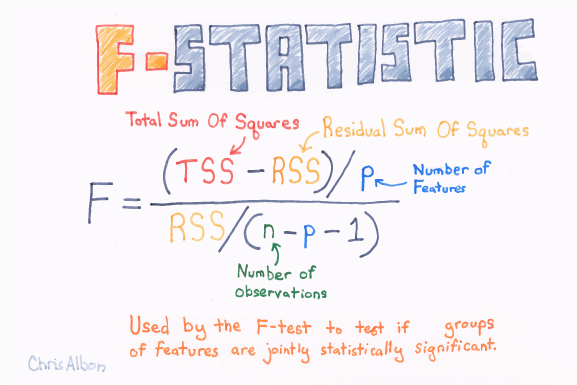 F-STATISTIC
Total Sum Of Squares
Residual Sum Of Squares
(TSS - RSS)/p
Number of
Features
F =
RSS/(n-p-1)
Number of
observations
Used by the F-test to test if groups
of features are jointly statistically significant.
Chris Albon